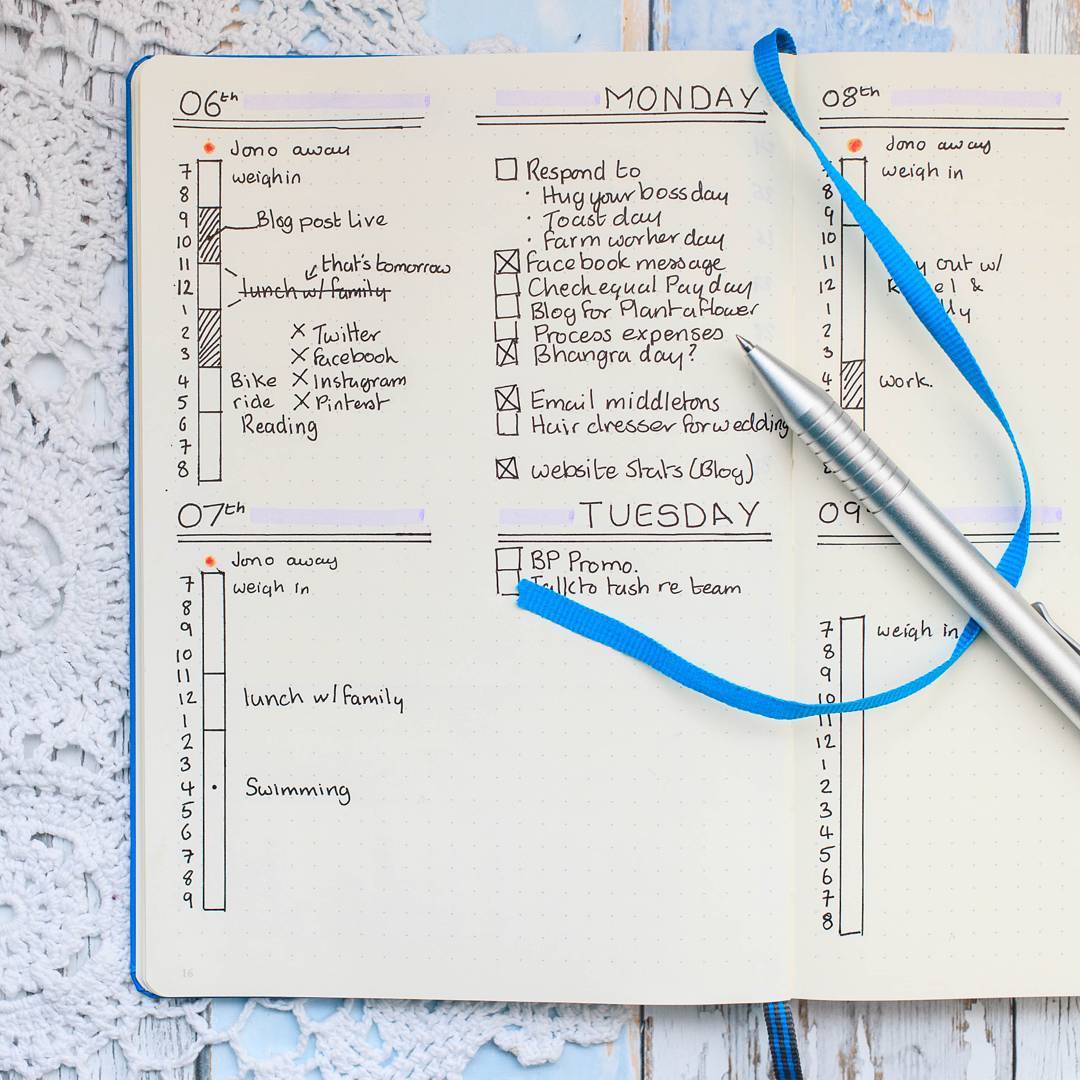 06th
MONDAY
Jono away
7 weigh in
8
9 Blog post live
10
11 that's tomorrow
12 lunch w/ family
1
2 X Twitter
3 X Facebook
4 Bike X Instagram
5 ride X Pinterest
6 Reading
7
8
Respond to
· Hug your boss day
· Toast day
· farm worker day
Facebook message
Check equal Pay day
Blog for Plant a flower
Process expenses
Bhangra day?
Email middletons
Hair dresser for wedding
website stats (Blog)
07th
TUESDAY
Jono away
7 weigh in
8
9
10
11
12 lunch w/ family
1
2
3
4 Swimming
5
6
7
8
9
BP Promo.
to tash re team
16
08th
Jono away
7 weigh in
8
9
10
11 out w/
12 &
1
2
3
4 work.
8
09
7 weigh in
8
9
10
11
12
1
2
3
4
5
6
7
8